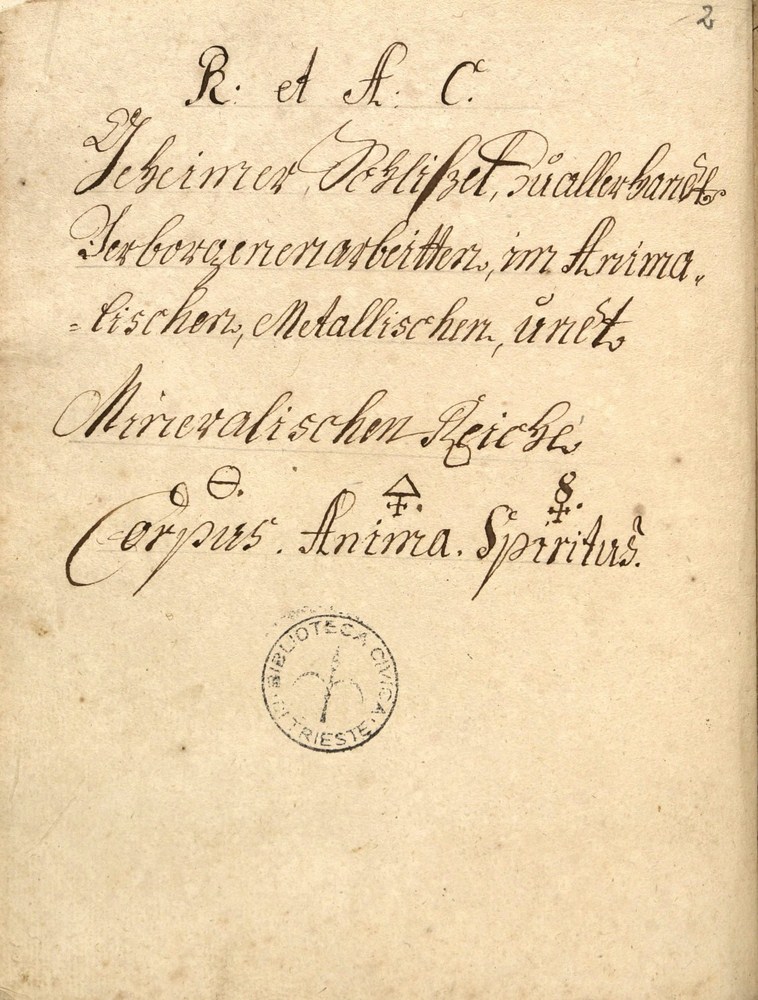 2
R: et A: C.
Geheimer Schlißel, Zů allerhandt
Verborgenen arbeitten, im Anima„
=lischen, Metallischen, ůndt
Mineralischen Reiche
🜔. 🜍. ☿.
Corpus. Anima. Spiritus.
BIBLIOTECA CIVICA
DI TRIESTE